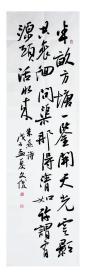 半畝方塘一鑒開天光雲影
共徘徊問渠那得清如許謂有
源頭活水來
朱熹詩
戊子孟夏文俊